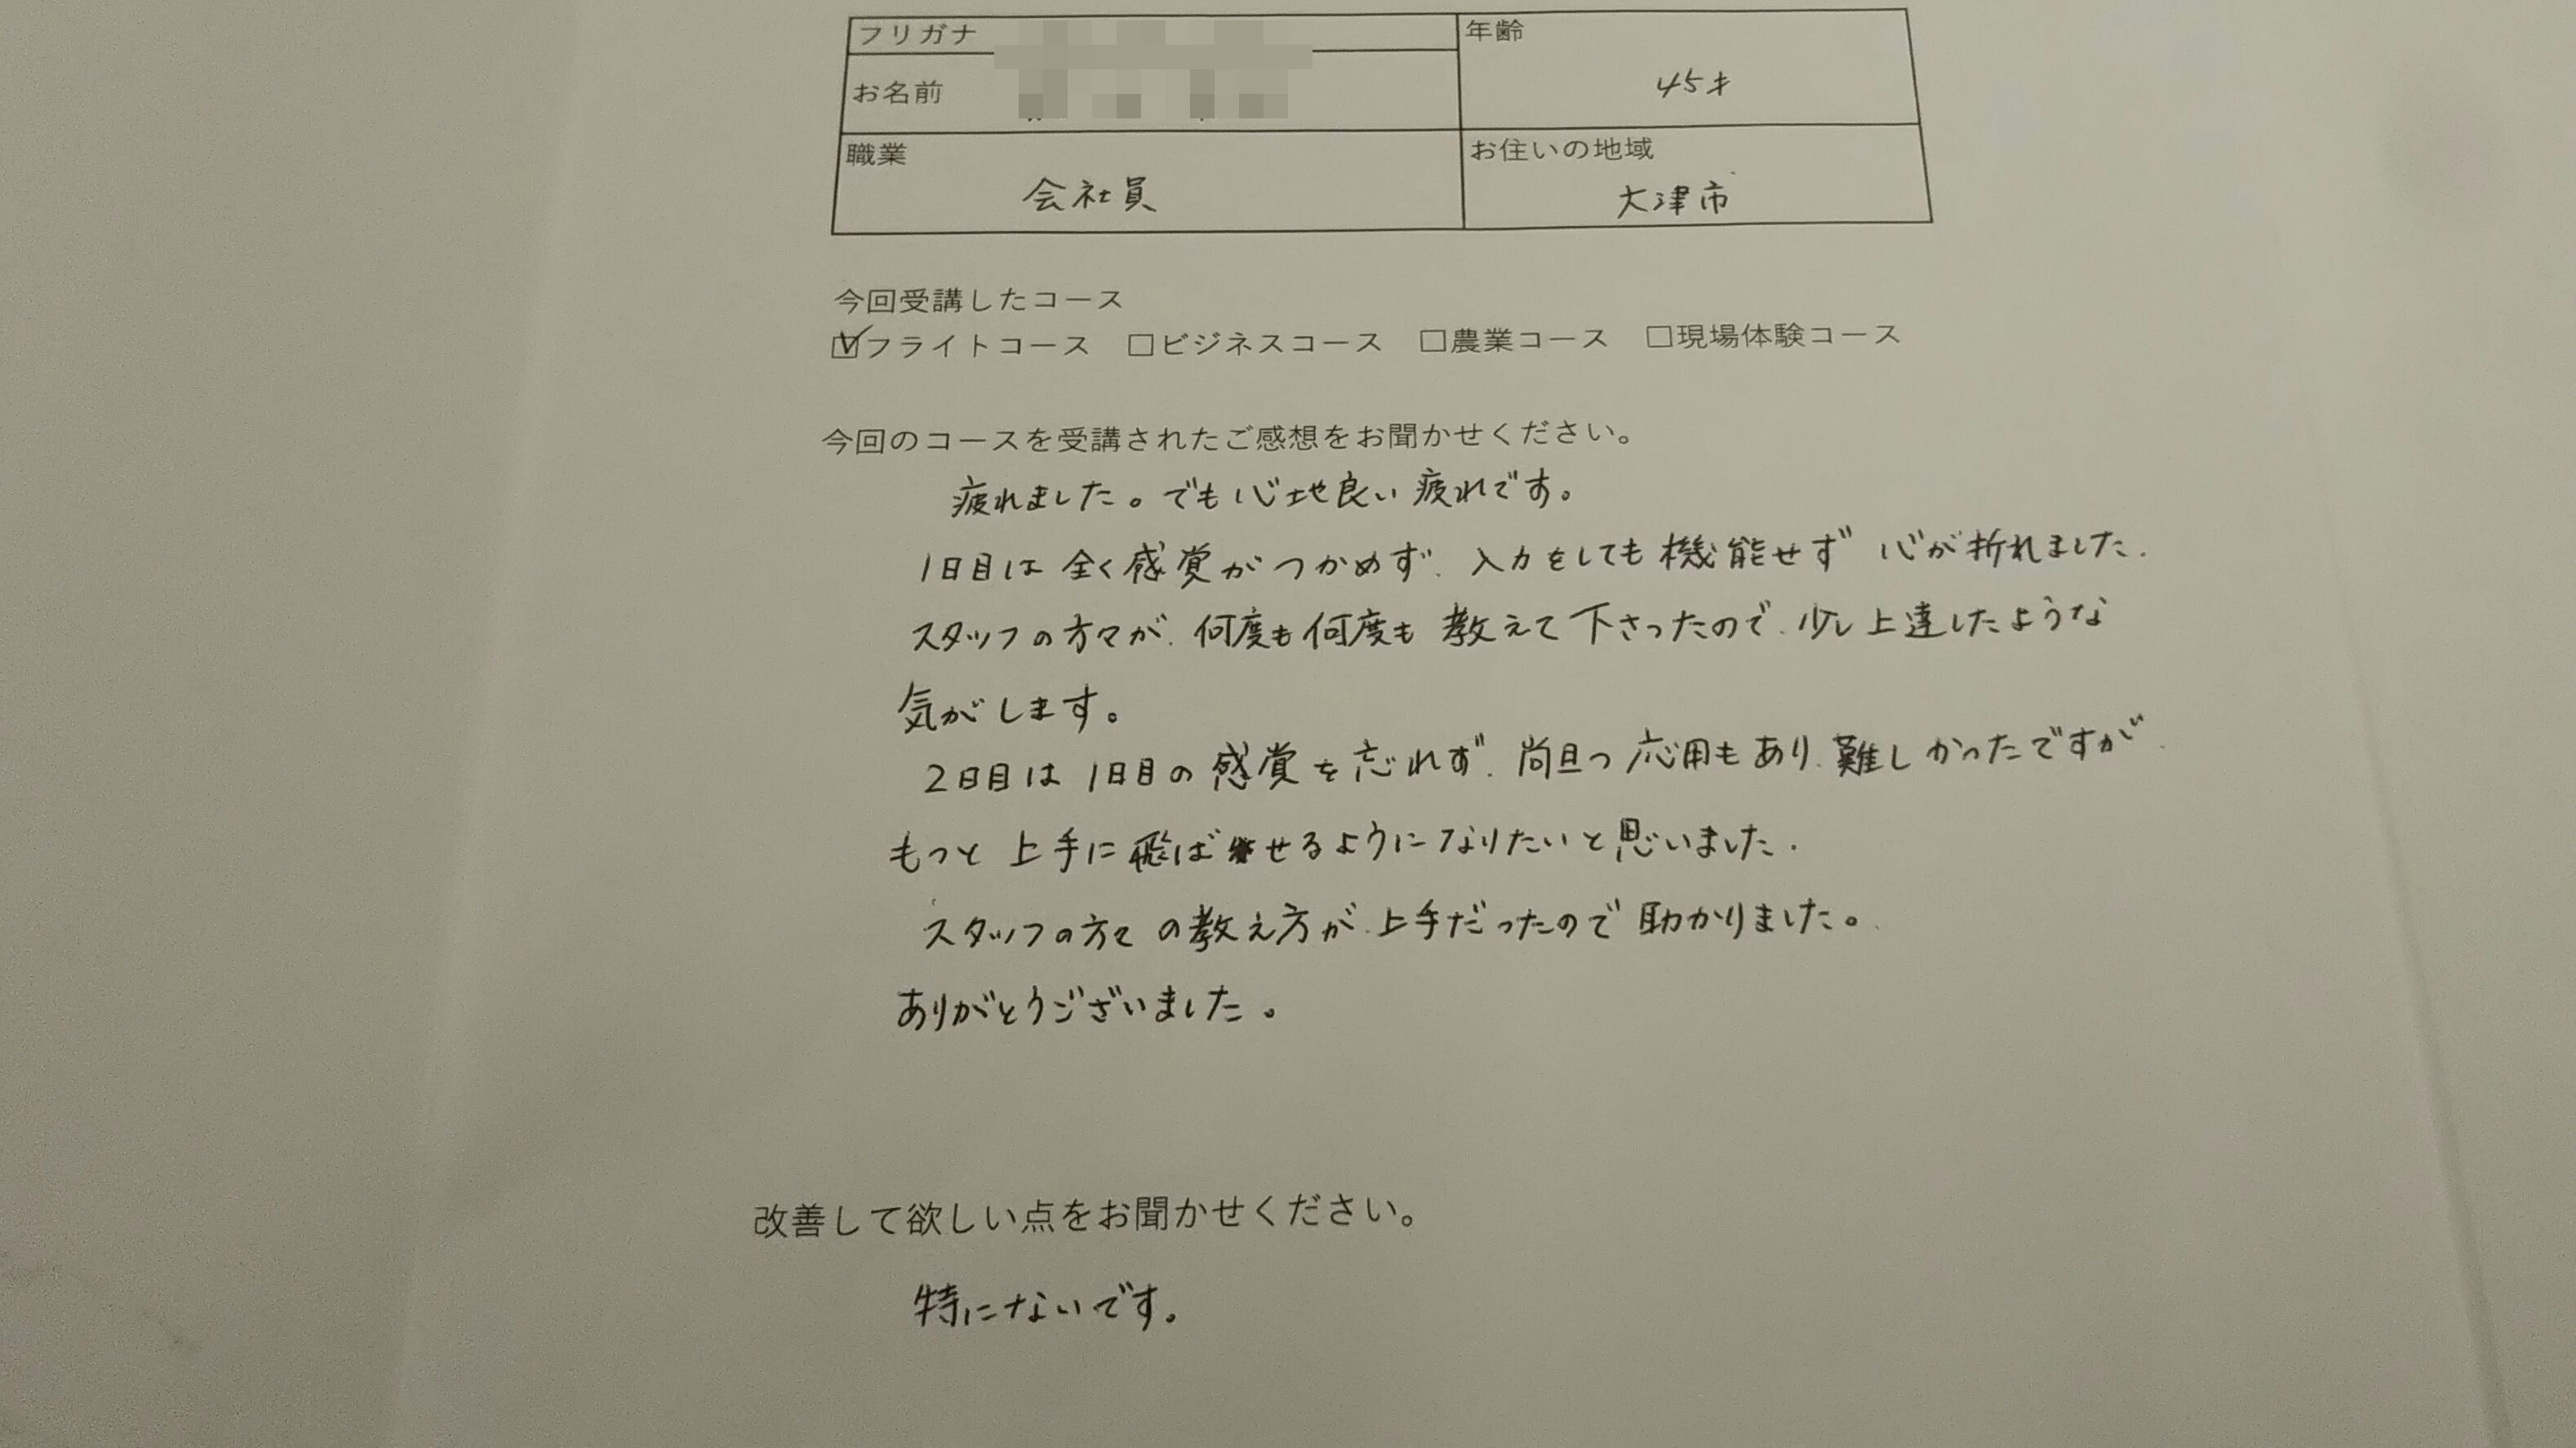 フリガナ
年齢
45才
お名前
職業
会社員
お住いの地域
大津市
今回受講したコース
☑フライトコース □ビジネスコース □農業コース □現場体験コース
今回のコースを受講されたご感想をお聞かせください。
疲れました。でも心地良い疲れです。
1日目は全く感覚がつかめず、入力をしても機能せず心が折れました.
スタッフの方々が、何度も何度も教えて下さったので、少し上達したような
気がします。
2日目は1日目の感覚を忘れず、尚且つ応用もあり、難しかったですが、
もっと上手に飛ばせるようになりたいと思いました.
スタッフの方々の教え方が上手だったので助かりました。
ありがとうございました。
改善して欲しい点をお聞かせください。
特にないです。